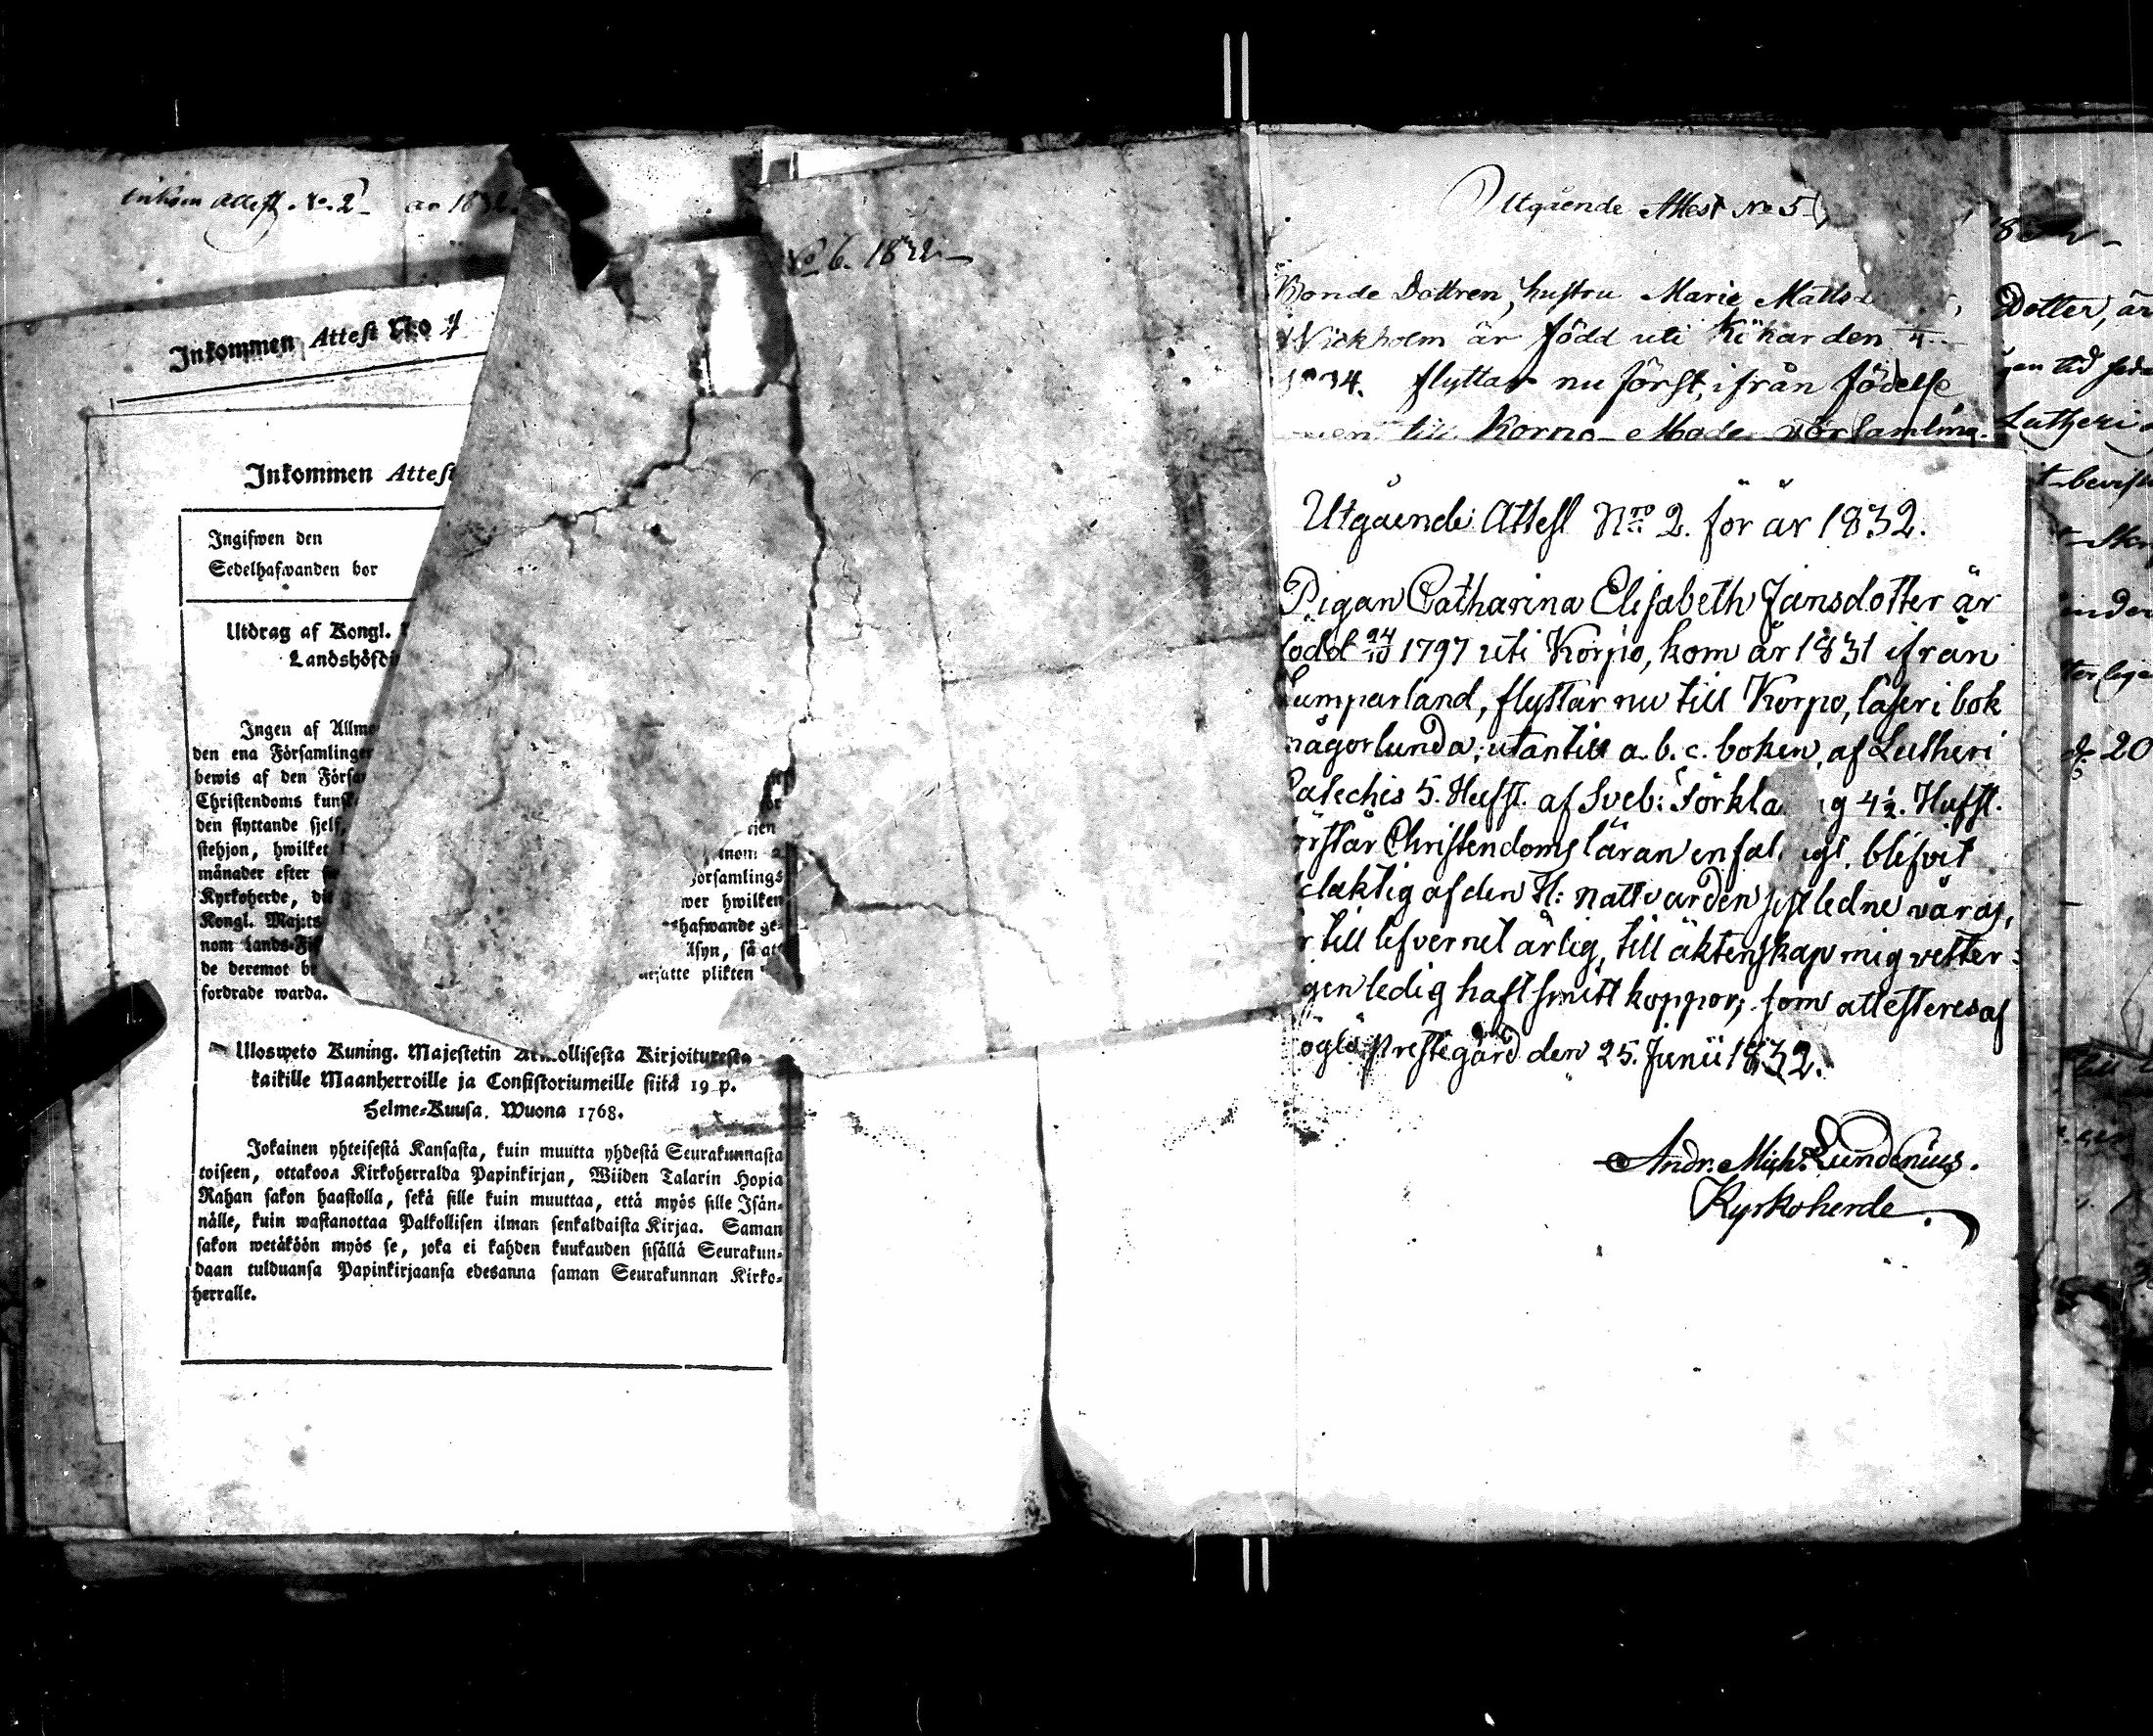 Inkom Attest No. 2 ar 1832.
Inkommen Attest No 4
Inkommen Attest
Ingifwen den
Sedelhafwanden bor
Utdrag af Kongl.
Landshöfdi
Ingen af Allmo
den ena Församlingen
bewis af den Försa
Christendoms kunsk
den flyttande sjelf,
stehjon, hwilket
månader efter
Kyrkoherde, di
Kongl. Maj:ts
nom Lands-Fi
de deremot b
fordrade warda.
rjen
inom 2
Församlings
wer hwilken
hafwande ge-
lsyn, så att
utsatte plikten
Ulosweto Kuning. Majestetin Armollisesta Kirjoituresta
kaikille Maanherroille ja Consistoriumeille siitä 19 p.
Helme-Kuusa. Wuona 1768.
Jokainen yhteisestä Kansasta, kuin muutta yhdestä Seurakunnasta
toiseen, ottakoon Kirkoherralda Papinkirjan, Wiiden Talarin Hopia
Rahan sakon haastolla, sekä sille kuin muuttaa, että myös sille Isän-
nälle, kuin wastanottaa Palkollisen ilman senkaldaista Kirjaa. Saman
sakon wetäköön myös se, joka ei kahden kuukauden sisällä Seurakun-
daan tulduansa Papinkirjaansa edesanna saman Seurakunnan Kirko-
herralle.
No 6. 1832
Utgående Attest No 5
Bonde Dottren, hustru Maria Matts
Wickholm är född uti Kökar den
flyttar nu först, ifrån födelse
till Korpo Moder Församling.
Utgående Attest Nro 2. för år 1832.
Pigan Catharina Elisabeth Jansdotter är
född 24/10 1797 uti Korpo, kom år 1831 ifrån
Lumparland, flyttar nu till Korpo, läser i bok
någorlunda, utantill a. b. c. boken, af Lutheri
Catechis 5. Hufst. af Sveb: Förkla g 4½. Hufst.
örstår Christendomsläran enfal. igt, blifvit
elaktig af den H: nattvarden sistledne våras,
r till lefvernet ärlig, till äktenskap mig vetter-
gen ledig haft smitt koppor; som attesteres af
öglö prestegård den 25. Junii 1832.
Andr. Mich. Lundenius.
Kyrkoherde.
Dotter, är
gen tid
Lutheri
20